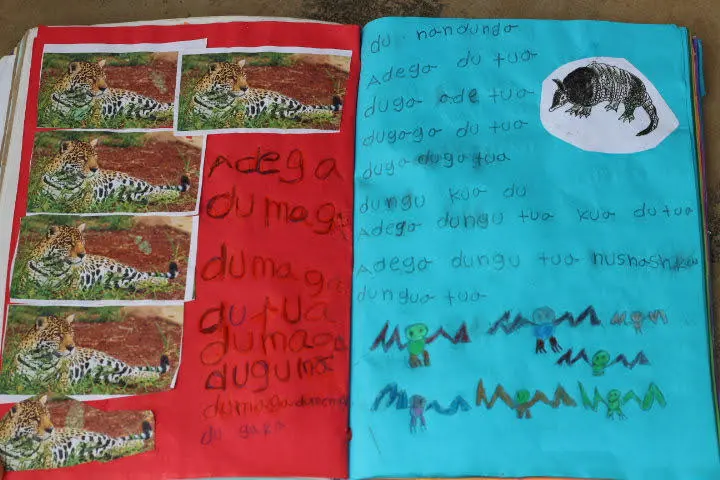 Adega
dumaga
dumaga
du tua
dumaga
duguma
dumaga
du gara
du nandunga
Adega du tua
duga ade tua
dugaga du tua
duga duga tua
dungu kua du
Adega dungu tua kua du tua
Adega dungu tua
dungua tua